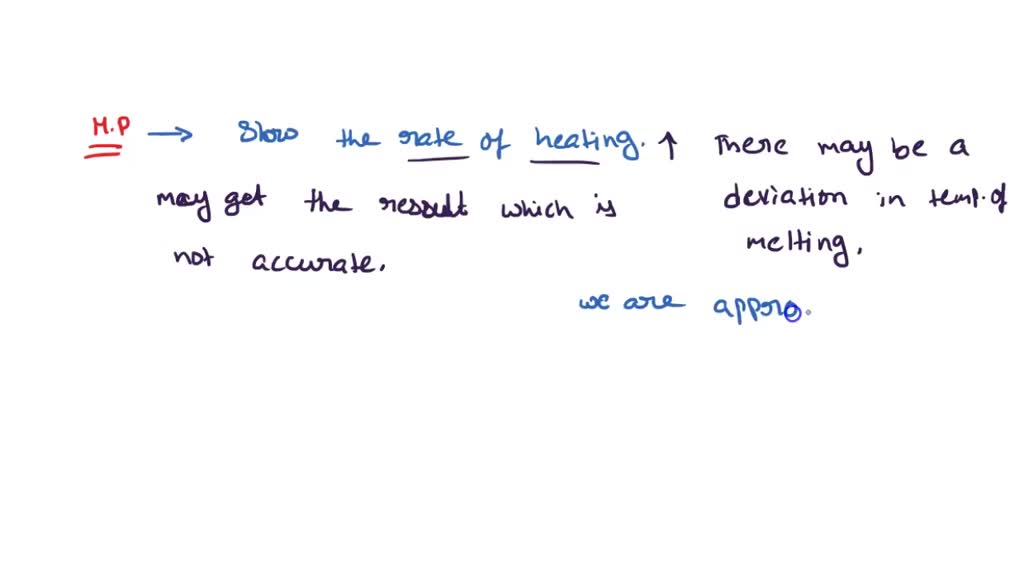 M.P → Slow the rate of heating. ↑ There may be a
may get the ressult which is deviation in temp. of
not accurate. melting.
we are appro.